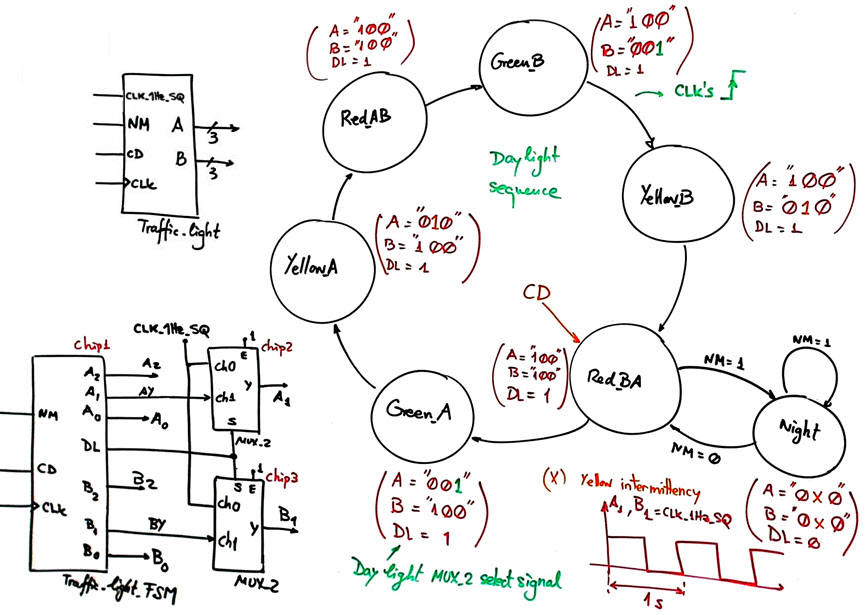 CLK_1Hz_SQ
NM
CD
CLK
A
3
B
3
Traffic_light
Red_AB
A = "100"
B = "100"
DL = 1
Green_B
A = "100"
B = "001"
DL = 1
→ CLK's
Daylight
sequence
Yellow_B
A = "100"
B = "010"
DL = 1
Yellow_A
A = "010"
B = "100"
DL = 1
CD
Red_BA
A = "100"
B = "100"
DL = 1
NM=1
NM=1
NM=0
Night
A = "0X0"
B = "0X0"
DL = 0
Green_A
A = "001"
B = "100"
DL = 1
Day light MUX_2 select signal
(X) Yellow intermittency
A1, B1 = CLK_1Hz_SQ
1s
CLK_1Hz_SQ
Chip1
NM
CD
CLK
A2
A1
A0
DL
B2
B1
B0
A2
AY
A0
B2
BY
B0
Traffic_light_FSM
Chip2
1
E
ch0
ch1
Y
S
A1
MUX_2
Chip3
1
S E
ch0
ch1
Y
B1
MUX_2